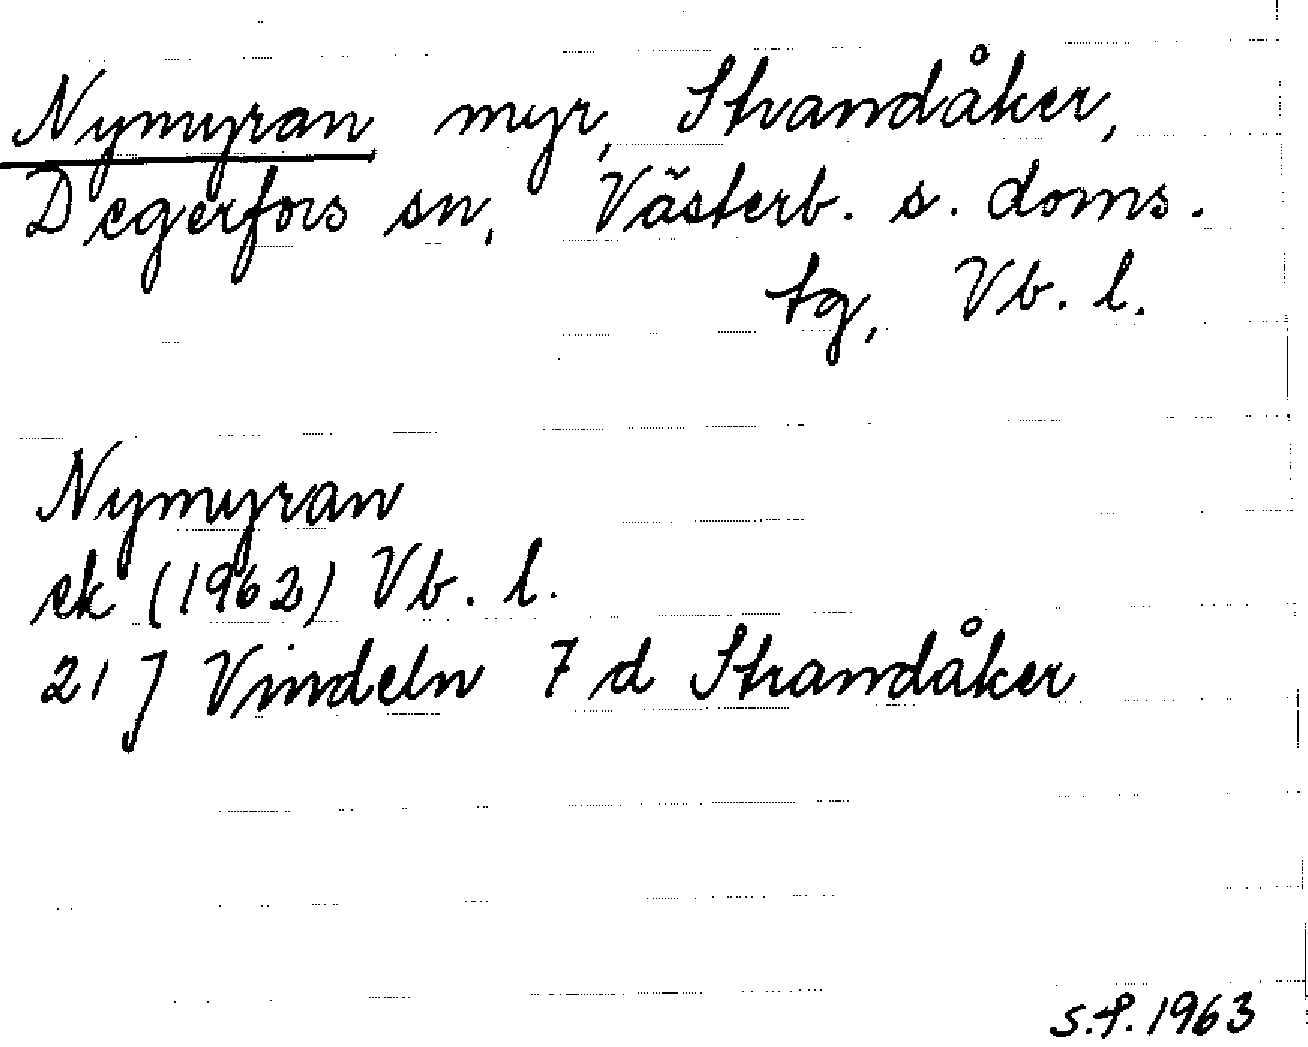 Nymyran myr, Strandåker,
Degerfors sn, Västerb. s. doms.
tg, Vb. l.
Nymyran
ek (1962) Vb. l.
21 J Vindeln 7 d Strandåker
S.f. 1963